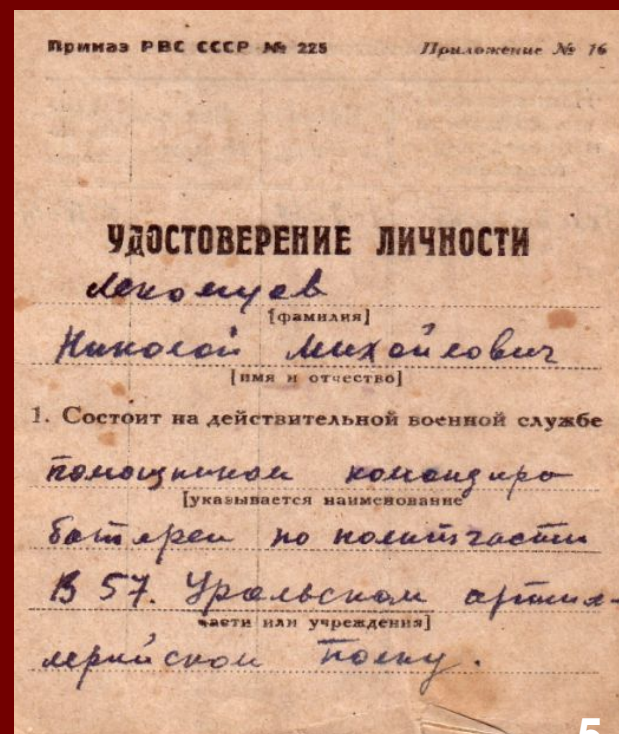 Приказ РВС СССР № 225 Приложение № 16
УДОСТОВЕРЕНИЕ ЛИЧНОСТИ
Лекомцев
[фамилия]
Николай Михайлович
[имя и отчество]
1. Состоит на действительной военной службе
помощником командира
[указывается наименование
батареи по политчасти
В 57. Уральском артил-
части или учреждения]
лерийском полку.
5